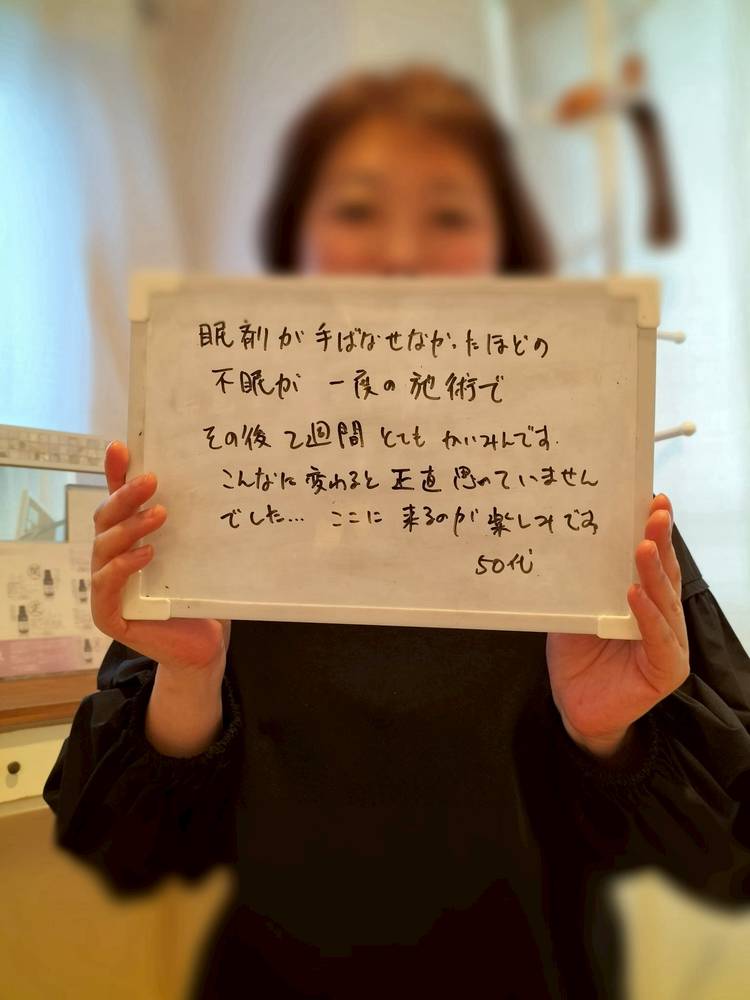 眠剤が手ばなせなかったほどの
不眠が 一度の施術で
その後 2週間 とても かいみんです.
こんなに変わると 正直 思っていません
でした… ここに 来るのが 楽しみです
50代